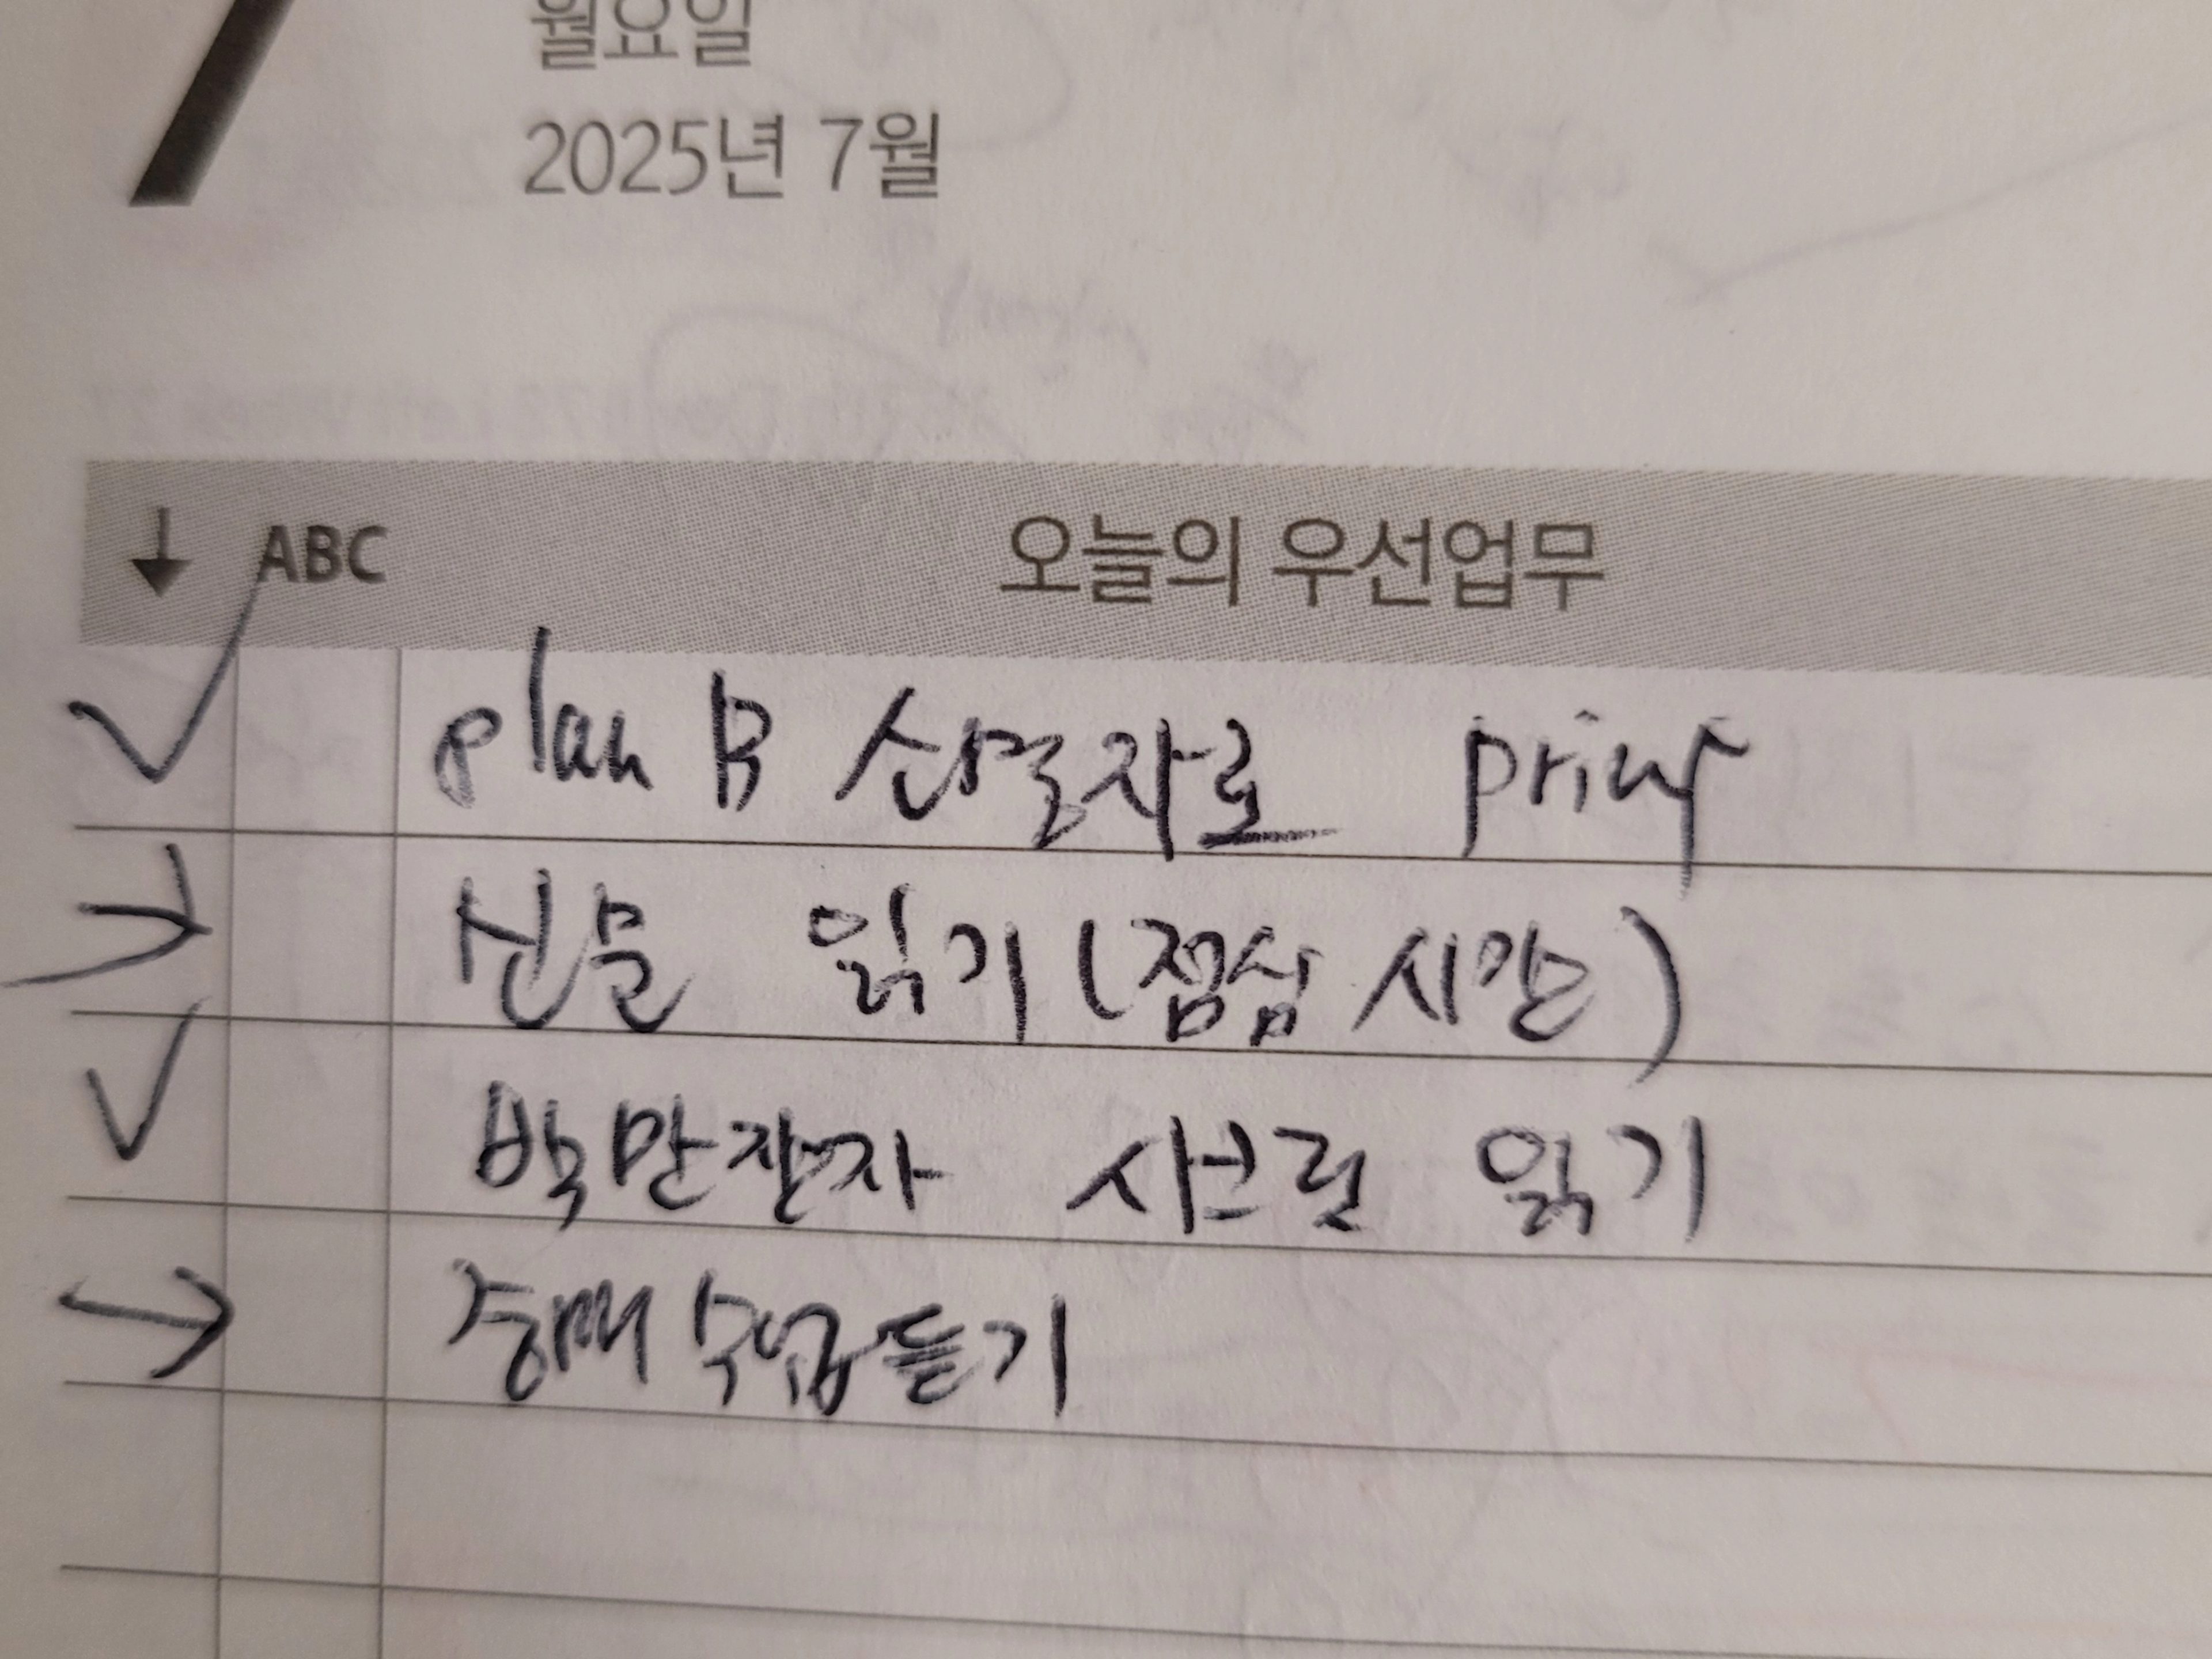 7
월요일
2025년 7월
↓ ABC 오늘의 우선업무
✓ plan B 산출자료 print
→ 신문 읽기 (점심 시간)
✓ 백만장자 시크릿 읽기
→ 경매 수업 듣기